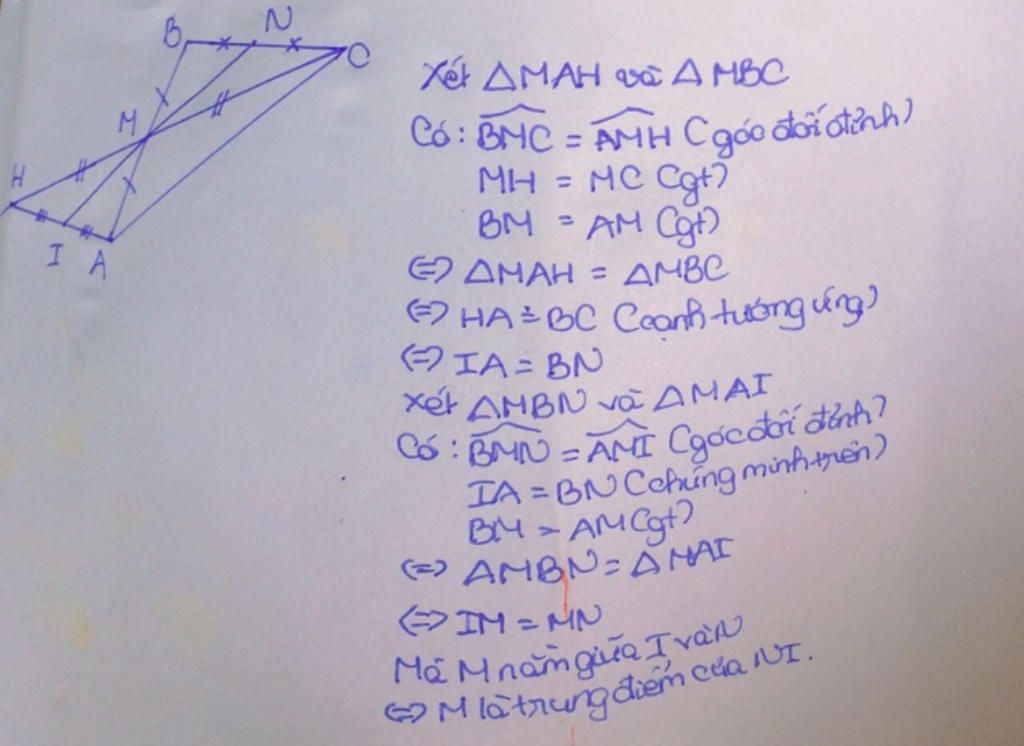 B N C
M
H
I A
Xét △MAH và △MBC
Có: \widehat{BMC} = \widehat{AMH} (góc đối đỉnh)
MH = MC (gt)
BM = AM (gt)
⇔ △MAH = △MBC
⇔ HA = BC (cạnh tướng ứng)
⇔ IA = BN
Xét △MBN và △MAI
Có: \widehat{BMN} = \widehat{AMI} (góc đối đỉnh)
IA = BN (chứng minh trên)
BM = AM (gt)
⇔ △MBN = △MAI
⇔ IM = MN
Mà M nằm giữa I và N
⇔ M là trung điểm của NI.